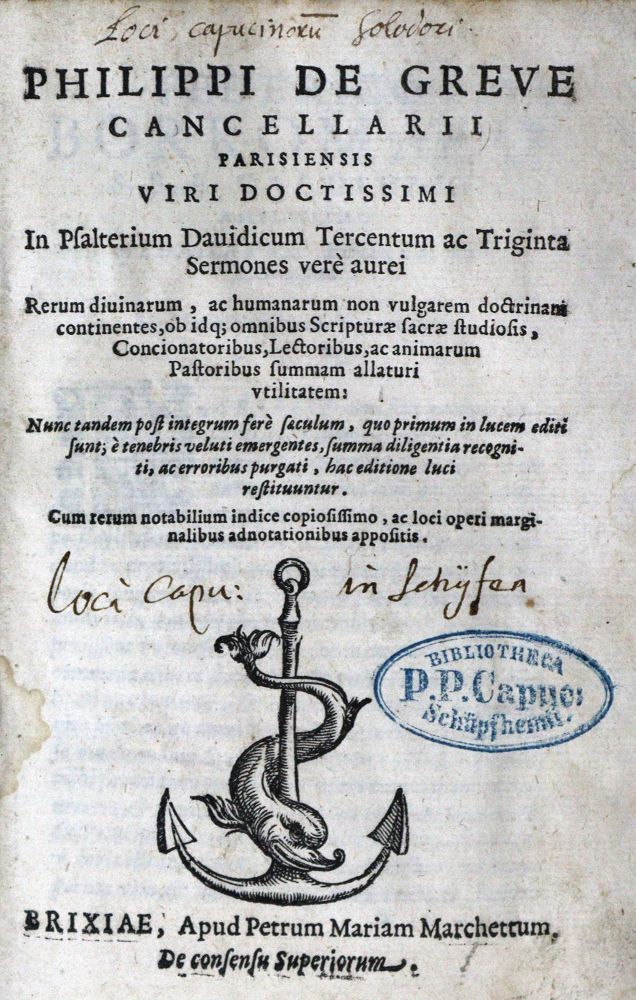 Loci capucinorū Solodori
PHILIPPI DE GREVE
CANCELLARII
PARISIENSIS
VIRI DOCTISSIMI
In Pſalterium Dauidicum Tercentum ac Triginta
Sermones verè aurei
Rerum diuinarum, ac humanarum non vulgarem doctrinam
continentes, ob idq; omnibus Scripturæ ſacræ ſtudioſis,
Concionatoribus, Lectoribus, ac animarum
Paſtoribus ſummam allaturi
vtilitatem:
Nunc tandem poſt integrum ferè ſæculum, quo primum in lucem editi
ſunt; è tenebris veluti emergentes, ſumma diligentia recogni-
ti, ac erroribus purgati, hac editione luci
reſtituuntur.
Cum rerum notabilium indice copioſiſſimo, ac loci operi margi-
nalibus adnotationibus appoſitis.
loci Capu: in Schÿfen
BIBLIOTHECA
P.P. Capuc:
Schüpfheim.
BRIXIAE, Apud Petrum Mariam Marchettum.
De conſenſu Superiorum.